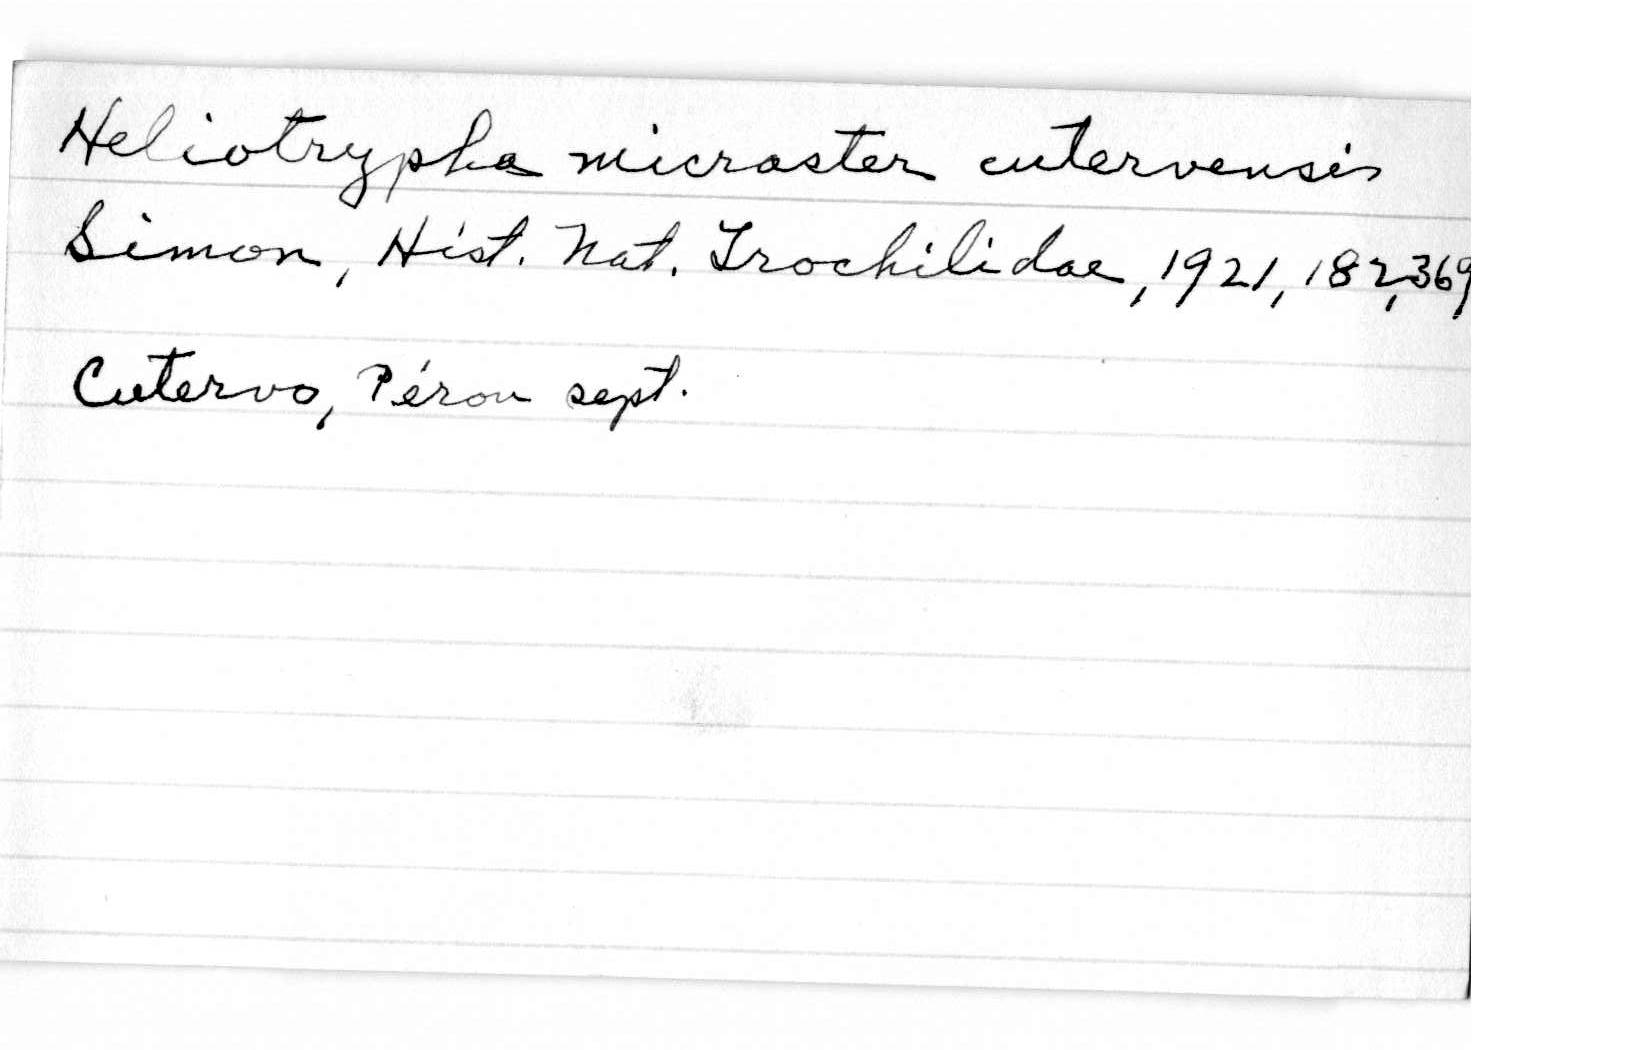 Heliotrypha micraster cutervensis
Simon, Hist. Nat. Trochilidae, 1921, 182, 369
Cutervo, Pérou sept.